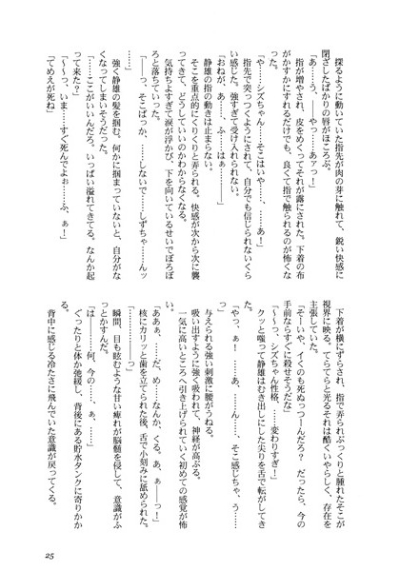 探るように動いていた指先が肉の芽に触れて、鋭い快感に
閉ざしたばかりの唇がほころぶ。
「あ……う、――やっ――あァっ!」
指が増やされ、皮をめくってそれが露にされた。下着の布
がかすかにすれるだけでも、良くて指で触られるのが怖くな
った。
「や……シズちゃん、……そこはいや……、……あ!」
指先で突っつくようにされて、自分でも信じられないくら
い感じた。強すぎて受け入れられない。
「おねが、あ……、ふ……はぁ」
静雄の指の動きは止まらない。
そこを重点的にくりくりと弄られる。快感が次から次に襲
ってきて、どうしていいのかわからなくなる。
気持ちよすぎて涙が浮かび、下を向いているせいでぽろぽ
ろと落ちていった。
「――っ、そこばっか、……しないで……しずちゃ……んッ
……」
強く静雄の髪を掴む。何かに掴まっていないと、自分がな
くなってしまいそうだった。
「……ここがいいんだろ。いっぱい溢れてきてる。なんか起
って来た?」
「～～っ、いま……すぐ死んでよぉ……ふ、ぁ!」
「てめえが死ね」
下着が横にずらされ、指で弄られぷっくりと腫れたそこが
視界に映る。てらてらと光るそれは酷くいやらしく、存在を
主張していた。
「そーいや、イくのも死ぬっつーんだろ?　だったら、今の
手前ならすぐに殺せそうだな」
「～～っ、シズちゃん性格、……変わりすぎ!」
クッと嗤って静雄はむき出しにした尖りを舌で転がしてき
た。
「やっ、ぁ!　……あ、……ん、……そこ感じちゃ、う……
……」
与えられる強い刺激に腰がうねる。
吸い出すように強く吸われて、神経が高ぶる。
一気に高いところへ引き上げられていく初めての感覚が怖
い。
「ああぁ、……だ、め……なんか、くる、あ、ぁ――っ!」
核にカリッと歯を立てられた後、舌で小刻みに舐められた。
「…………――っ」
瞬間、目も眩むような甘い痺れが脳髄を侵して、意識がふ
っとかすんだ。
「は――……何、今の……、ぁ、……」
ぐったりと体が弛緩し、背後にある貯水タンクに寄りかか
る。
背中に感じる冷たさに飛んでいた意識が戻ってくる。
25